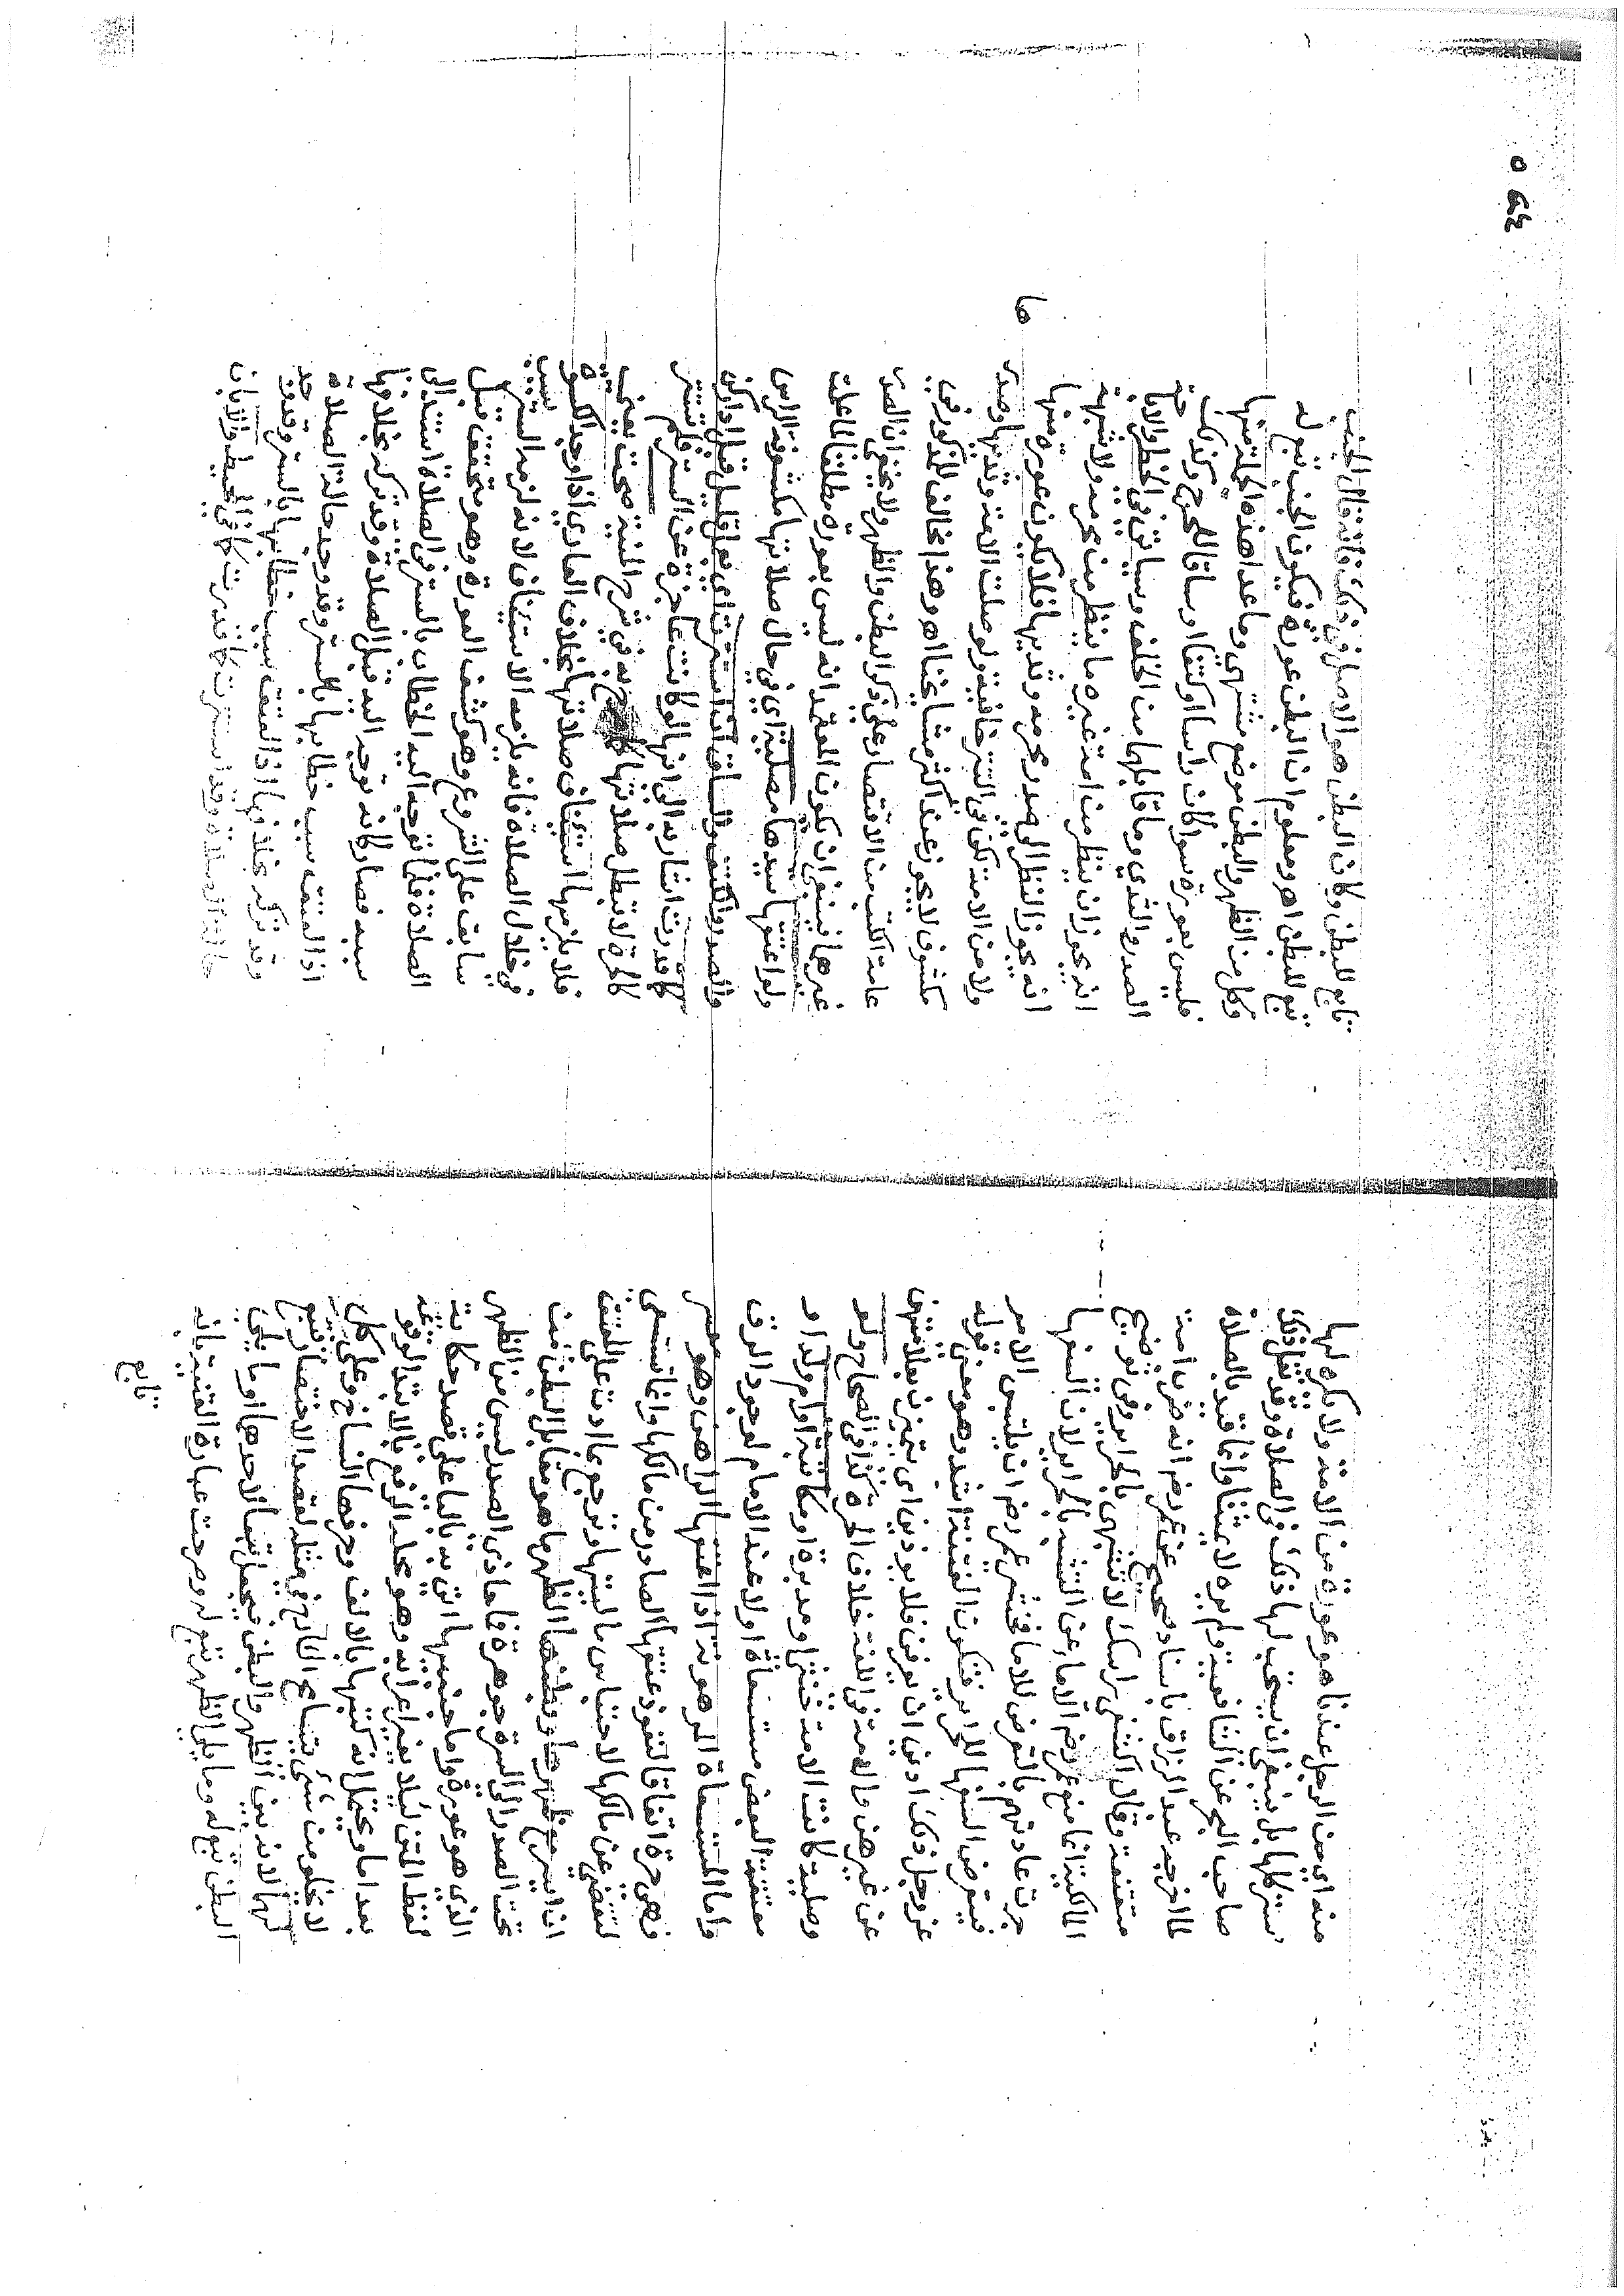 منه اي من الرجل عندنا هو عورة من الامة ولا يكره لها
ستر كلها بل ينبغي ان يستحب لها ذلك في الصلاة وقد نقل ذلك
صاحب البحر عن الشافعية ولم يره لايمتنا وانما قيد بالصلاة
لما اخرجه عبد الرزاق باسناد صحيح عن عمر رض انه ضرب امة
متقنعة وقال اكشفي راسك لا تتشبهي بالحراير وفي توضيح
المالكية انما منع عمر رض الاماء عن التشبه بالحراير لان السفها
جرت عادتهم بالتعرض للاما فخشي عمر رض ان يلتبس الامر
فيتعرض السفها للحراير فتكون الفتنة اشد وهو معنى قوله
عز وجل ذلك ادنى ان يعرفن فلا يؤذين اي يتميزن بعلامتهن
عن غيرهن والامة في اللغة خلاف الحرة كذا في الصحاح ولو
وصلية كانت الامة خنثى او مدبرة او مكاتبة او ام ولد او
معتقة البعض مستسعاة اولا عند الامام لوجود الرق
واما المستسعاة المرهونة اذا اعتقها الراهن وهو معسر
فهي حرة اتفاقا لنفوذ عتقها الصادر من مالكها وانما تستسعى
لتقضي عن مالكها لاحتباس ماليتها وترجع بما ادت على المعتق
اذا ايسر مع ظهرها وبطنها الظهر ما هو مقابل البطن من
تحت الصدر الى السرة جوهرة فما حاذى الصدر ليس من الظهر
الذي هو عورة واما جنبها اتى به بالياء على قصد حكاية
لفظ المتن ليلا يغير اعرابه وهو محله الرفع بالابتدا لوقوعه
بعد اما ويحتمل انه كتبها بالالف وحرفها النساخ وعلى كل
لا يخلو من شيء يتسامح الشارح في مثله لقصد الاختصار فتبع
لهما لانه بين الظهر والبطن فيجعل تبعا لاحدهما او ما يلي
البطن تبع له وما يلي الظهر تبع له وصرحت عبارة القنية بانه
تابع
تابع للبطن وكان البطن هو الاصل في ذلك فانه قال الجنب
تبع للبطن اهـ ومعلوم ان البطن عورة فيكون الجنب تبع له
وكل من الظهر والبطن موضع مشتهى وما عدا هذه الجملة منها
فليس بعورة سوا كان راسا او كتفا او ساقا للحرج وكذلك
الصدر والثدي وما قابلهما من الخلف وسياتي في الحظر والاباحة
انه يجوز ان ينظر من امة غيره ما ينظر من محرمه ولا شبهة
انه يجوز النظر الى صدر محرمه وثديها فلا يكون عورة منها
ولا من الامة لكن في التترخانية لو صلت الامة وثديها وصدرها
مكشوف لا يجوز عند اكثر مشايخنا اهـ وهذا مخالف للمذكور في
عامة الكتب من الاقتصار على ذكر البطن والظهر ولا يخفى ان الصدر
غيرهما فينبغي ان يكون المعتمد انه ليس بعورة مطلقا لما علمت
ولو اعتقها سيدها مصلية اي في حال صلاتها مكشوفة الراس
والصدر والكتف والساق فان استترت اي بعمل قليل قبل اداء ركن
كما قدرت اشار به الى انها لو كانت عاجزة عن الستر فلم تستتر
كالحرة لا تبطل صلاتها كما صرح به في شرح المنية صحت يعني
فلا يلزمها استيناف صلاتها بخلاف العاري اذا وجد الكسوة
في خلال الصلاة فانه يلزمه الاستيناف لانه لزمه الستر بسبب
سابق على الشروع وهو كشف العورة وهو متحقق قبل
الصلاة فلما توجه اليه الخطاب بالستر في الصلاة استند الى
سببه فصار كانه توجه اليه قبل الصلاة وقد تركه بخلافها
اذ العتق سبب خطابها بالستر وقد وجد حالة الصلاة
وقد تركه بخلافها اذ العتق سبب خطابها بالستر وقد وجد
حالة الصلاة وقد استترت كما قدرت كما في المحيط والا بان
٦